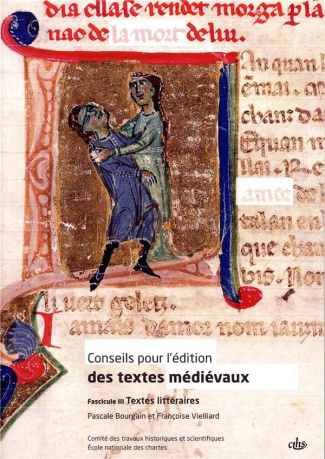 dia ellase rendet morga per la
nao de la mort de lui.
An quan l
chan: da
Quan n
amor de l
talan en
que chan
bis. Non
amaisdemor nom
Conseils pour l'édition
des textes médiévaux
Fascicule III Textes littéraires
Pascale Bourgain et Françoise Vielliard
Comité des travaux historiques et scientifiques
École nationale des chartes
cths